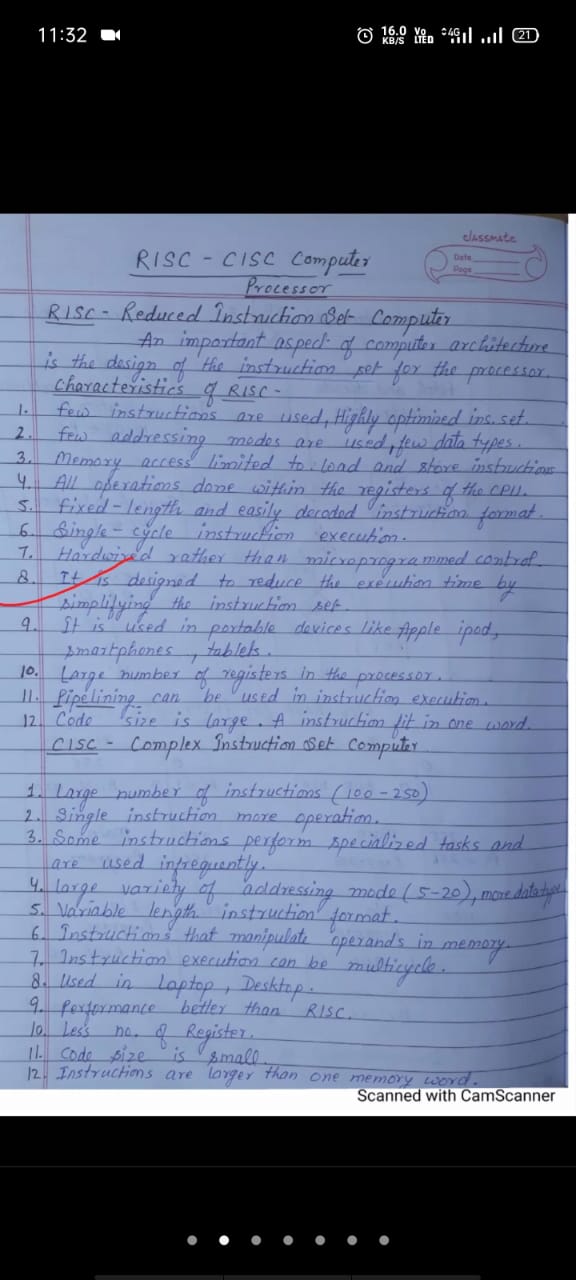 11:32
16.0 KB/S
Vo LTED
4G
21
classmate
Date
Page
RISC - CISC Computer
Processor
RISC - Reduced Instruction Set Computer
An important aspect of computer architecture
is the design of the instruction set for the processor.
Characteristics of RISC -
1. few instructions are used, Highly optimized ins. set.
2. few addressing modes are used, few data types.
3. Memory access limited to load and store instructions
4. All operations done within the registers of the CPU.
5. fixed-length and easily decoded instruction format.
6. Single-cycle instruction execution.
7. Hardwired rather than microprogrammed control.
8. It is designed to reduce the execution time by
simplifying the instruction set.
9. It is used in portable devices like Apple ipod,
smartphones, tablets.
10. Large number of registers in the processor.
11. Pipelining can be used in instruction execution.
12. Code size is large. A instruction fit in one word.
CISC - Complex Instruction Set Computer
1. Large number of instructions (100-250)
2. Single instruction more operation.
3. Some instructions perform specialized tasks and
are used infrequently.
4. large variety of addressing mode (5-20), more data type
5. Variable length instruction format.
6. Instructions that manipulate operands in memory.
7. Instruction execution can be multicycle.
8. Used in Laptop, Desktop.
9. Performance better than RISC.
10. Less no. of Register.
11. Code size is small.
12. Instructions are larger than one memory word.
Scanned with CamScanner